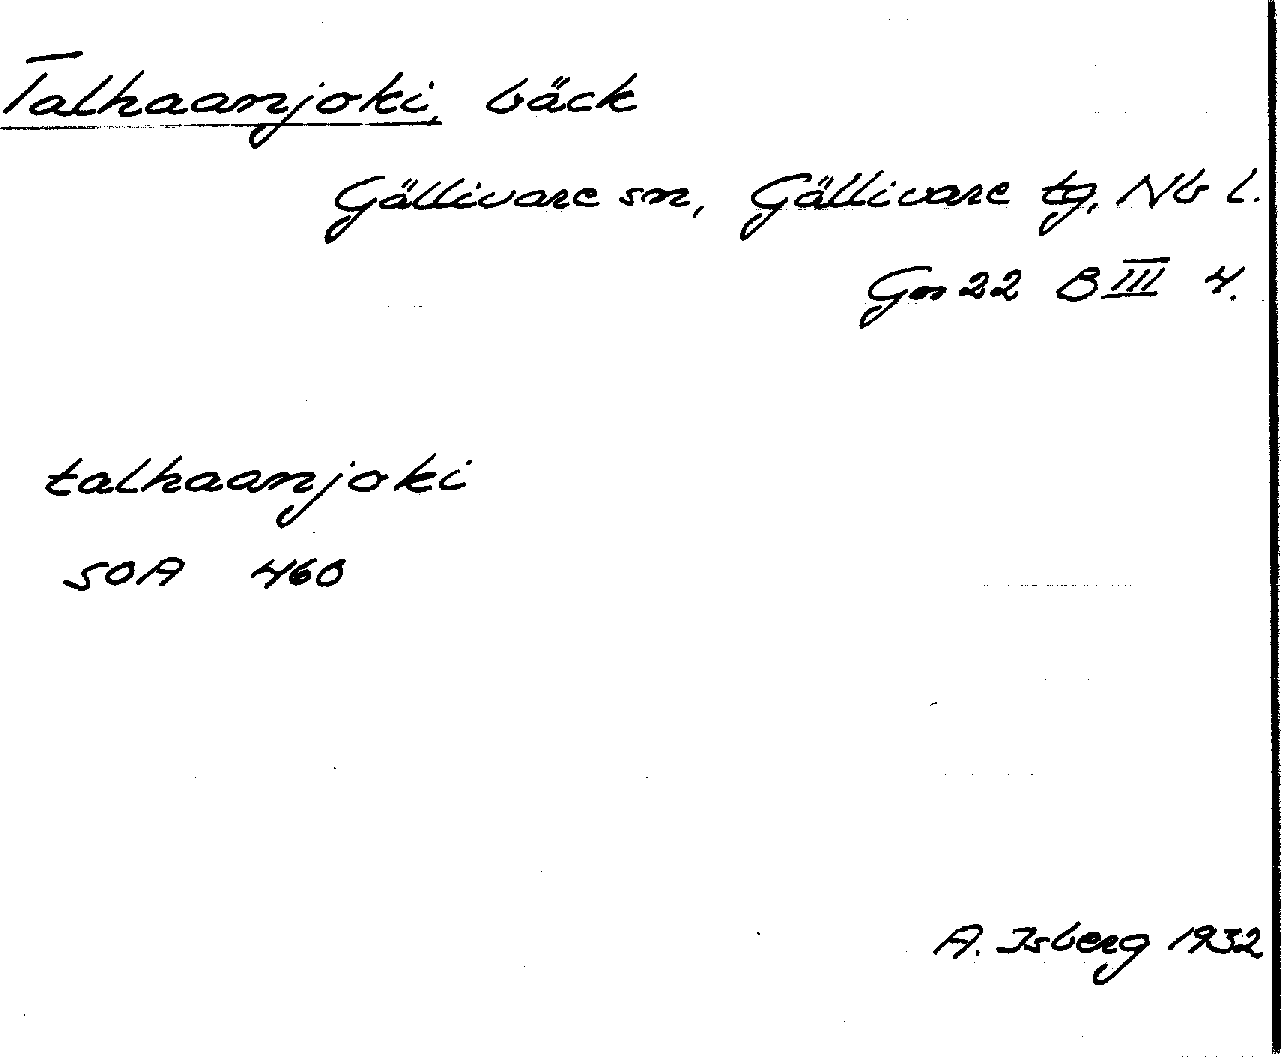 Talhaanjoki, bäck
Gällivare sn, Gällivare tg, Nb l.
Gm 22 B III 4.
talhaanjoki
SOA 460
A. Isberg 1932